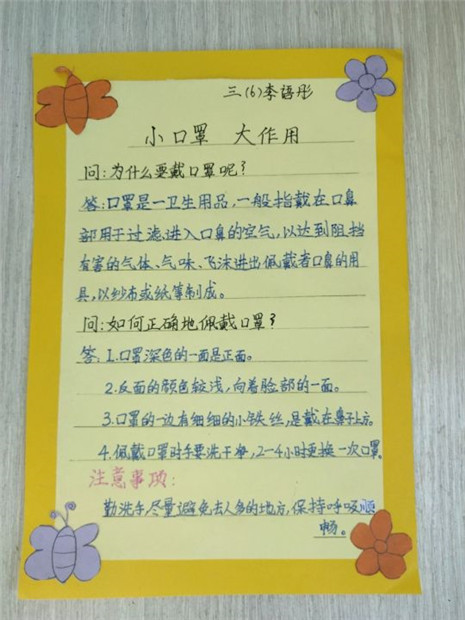 三(6)李语彤
小口罩 大作用
问:为什么要戴口罩呢?
答:口罩是一卫生用品,一般指戴在口鼻
部用于过滤进入口鼻的空气,以达到阻挡
有害的气体、气味、飞沫进出佩戴者口鼻的用
具,以纱布或纸等制成。
问:如何正确地佩戴口罩?
答:1.口罩深色的一面是正面。
2.反面的颜色较浅,向着脸部的一面。
3.口罩的一边有细细的小铁丝,是戴在鼻子上方。
4.佩戴口罩时手要洗干净,2-4小时更换一次口罩。
注意事项:
勤洗手尽量避免去人多的地方,保持呼吸顺
畅。